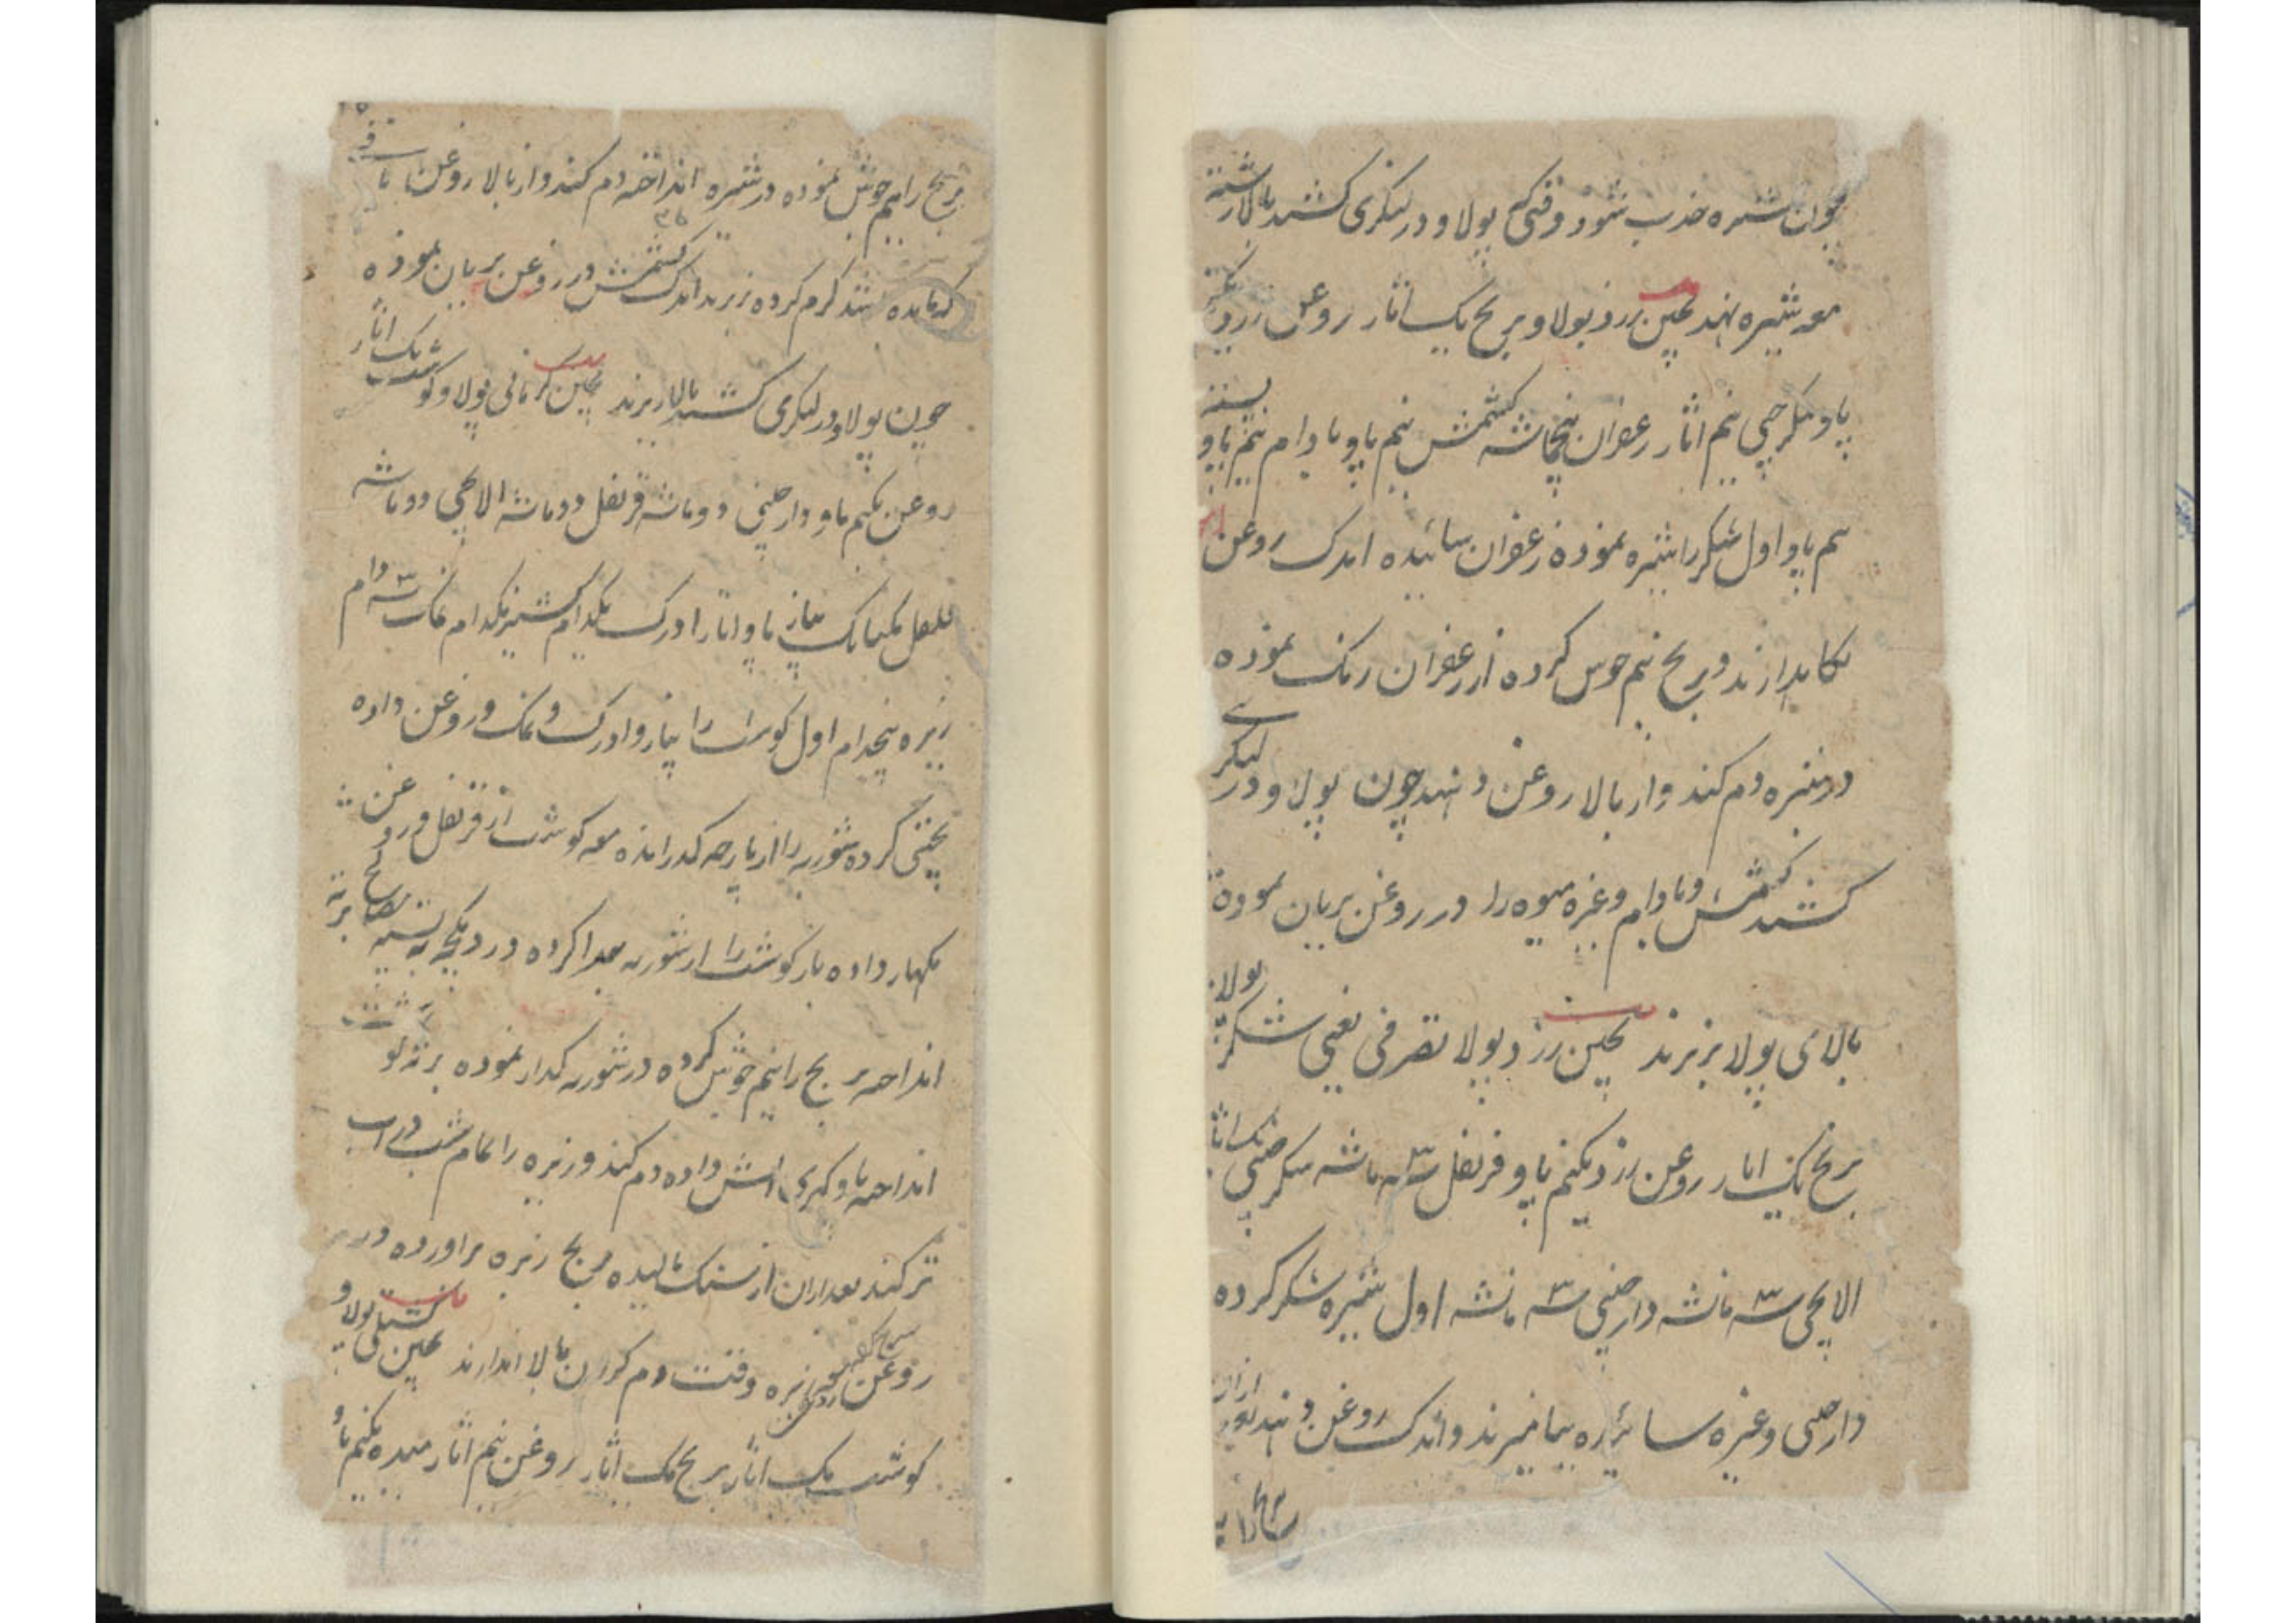 چون شیره جذب شود وقتی که پولاو در لنگری کشند بالا رشته
معه شیره نهند پختن زرد پولاو برنج یک اثار روغن زرد
پاو شکر چینی نیم اثار زعفران پنجماشه کشمش نیم پاو بادام نیم پاو پسته
نیم پاو اول شکر را شیره نموده زعفران سائیده اندک روغن
نکاهدارند و برنج نیم جوش کرده از زعفران رنک نموده
در شیره دم کنند و از بالا روغن دهند چون پولاو در لنگری
کشند کشمش و بادام وغیره میوه را در روغن بریان نموده
بالای پولا بریزند پختن زرد پولا تصرفی یعنی شکر پولا
برنج یک اثار روغن زرد یکنیم پاو قرنفل سه ماشه شکر چینی یک اثار
الایچی سه ماشه دارچینی سه ماشه اول شیره شکر کرده
دارچینی وغیره سائیده بیامیزند و اندک روغن دهند بعد ازان
برنج را نیم جوش نموده در شیره انداخته دم کنند و از بالا روغن باقی
که مانده باشد کرم کرده بریزند اندک کشمش در روغن بریان نموده
چون پولاو در لنکری کشند بالا بریزند پختن کرمانی پولاو کوشت یک اثار
روغن یکنیم پاو دارچینی دو ماشه قرنفل دو ماشه الایچی دو ماشه
فلفل یکتانک پیاز پاو اثار ادرک یکدام کشنیز یکدام نمک سه دام
زیره پنجدام اول کوشت را پیاز و ادرک و نمک و روغن داده
یخنی کرده شوربه را از پارچه کذرانده معه کوشت از قرنفل و روغن
بکهار داده باز کوشت را از شوربه جدا کرده در دیکچه ته
انداخته برنج را نیم جوش کرده در شوربه کداز نموده بر ته کوشت
انداخته پاو کهری اتش داده دم کنند و زیره را تمام شب در اب
تر کنند بعد ازان از سنک مالیده مرچ زیره براورده در
روغن زیره وقت دم کردن بالا اندازند پختن پولاو
کوشت یک اثار برنج یک اثار روغن نیم اثار میده یکنیم پاو